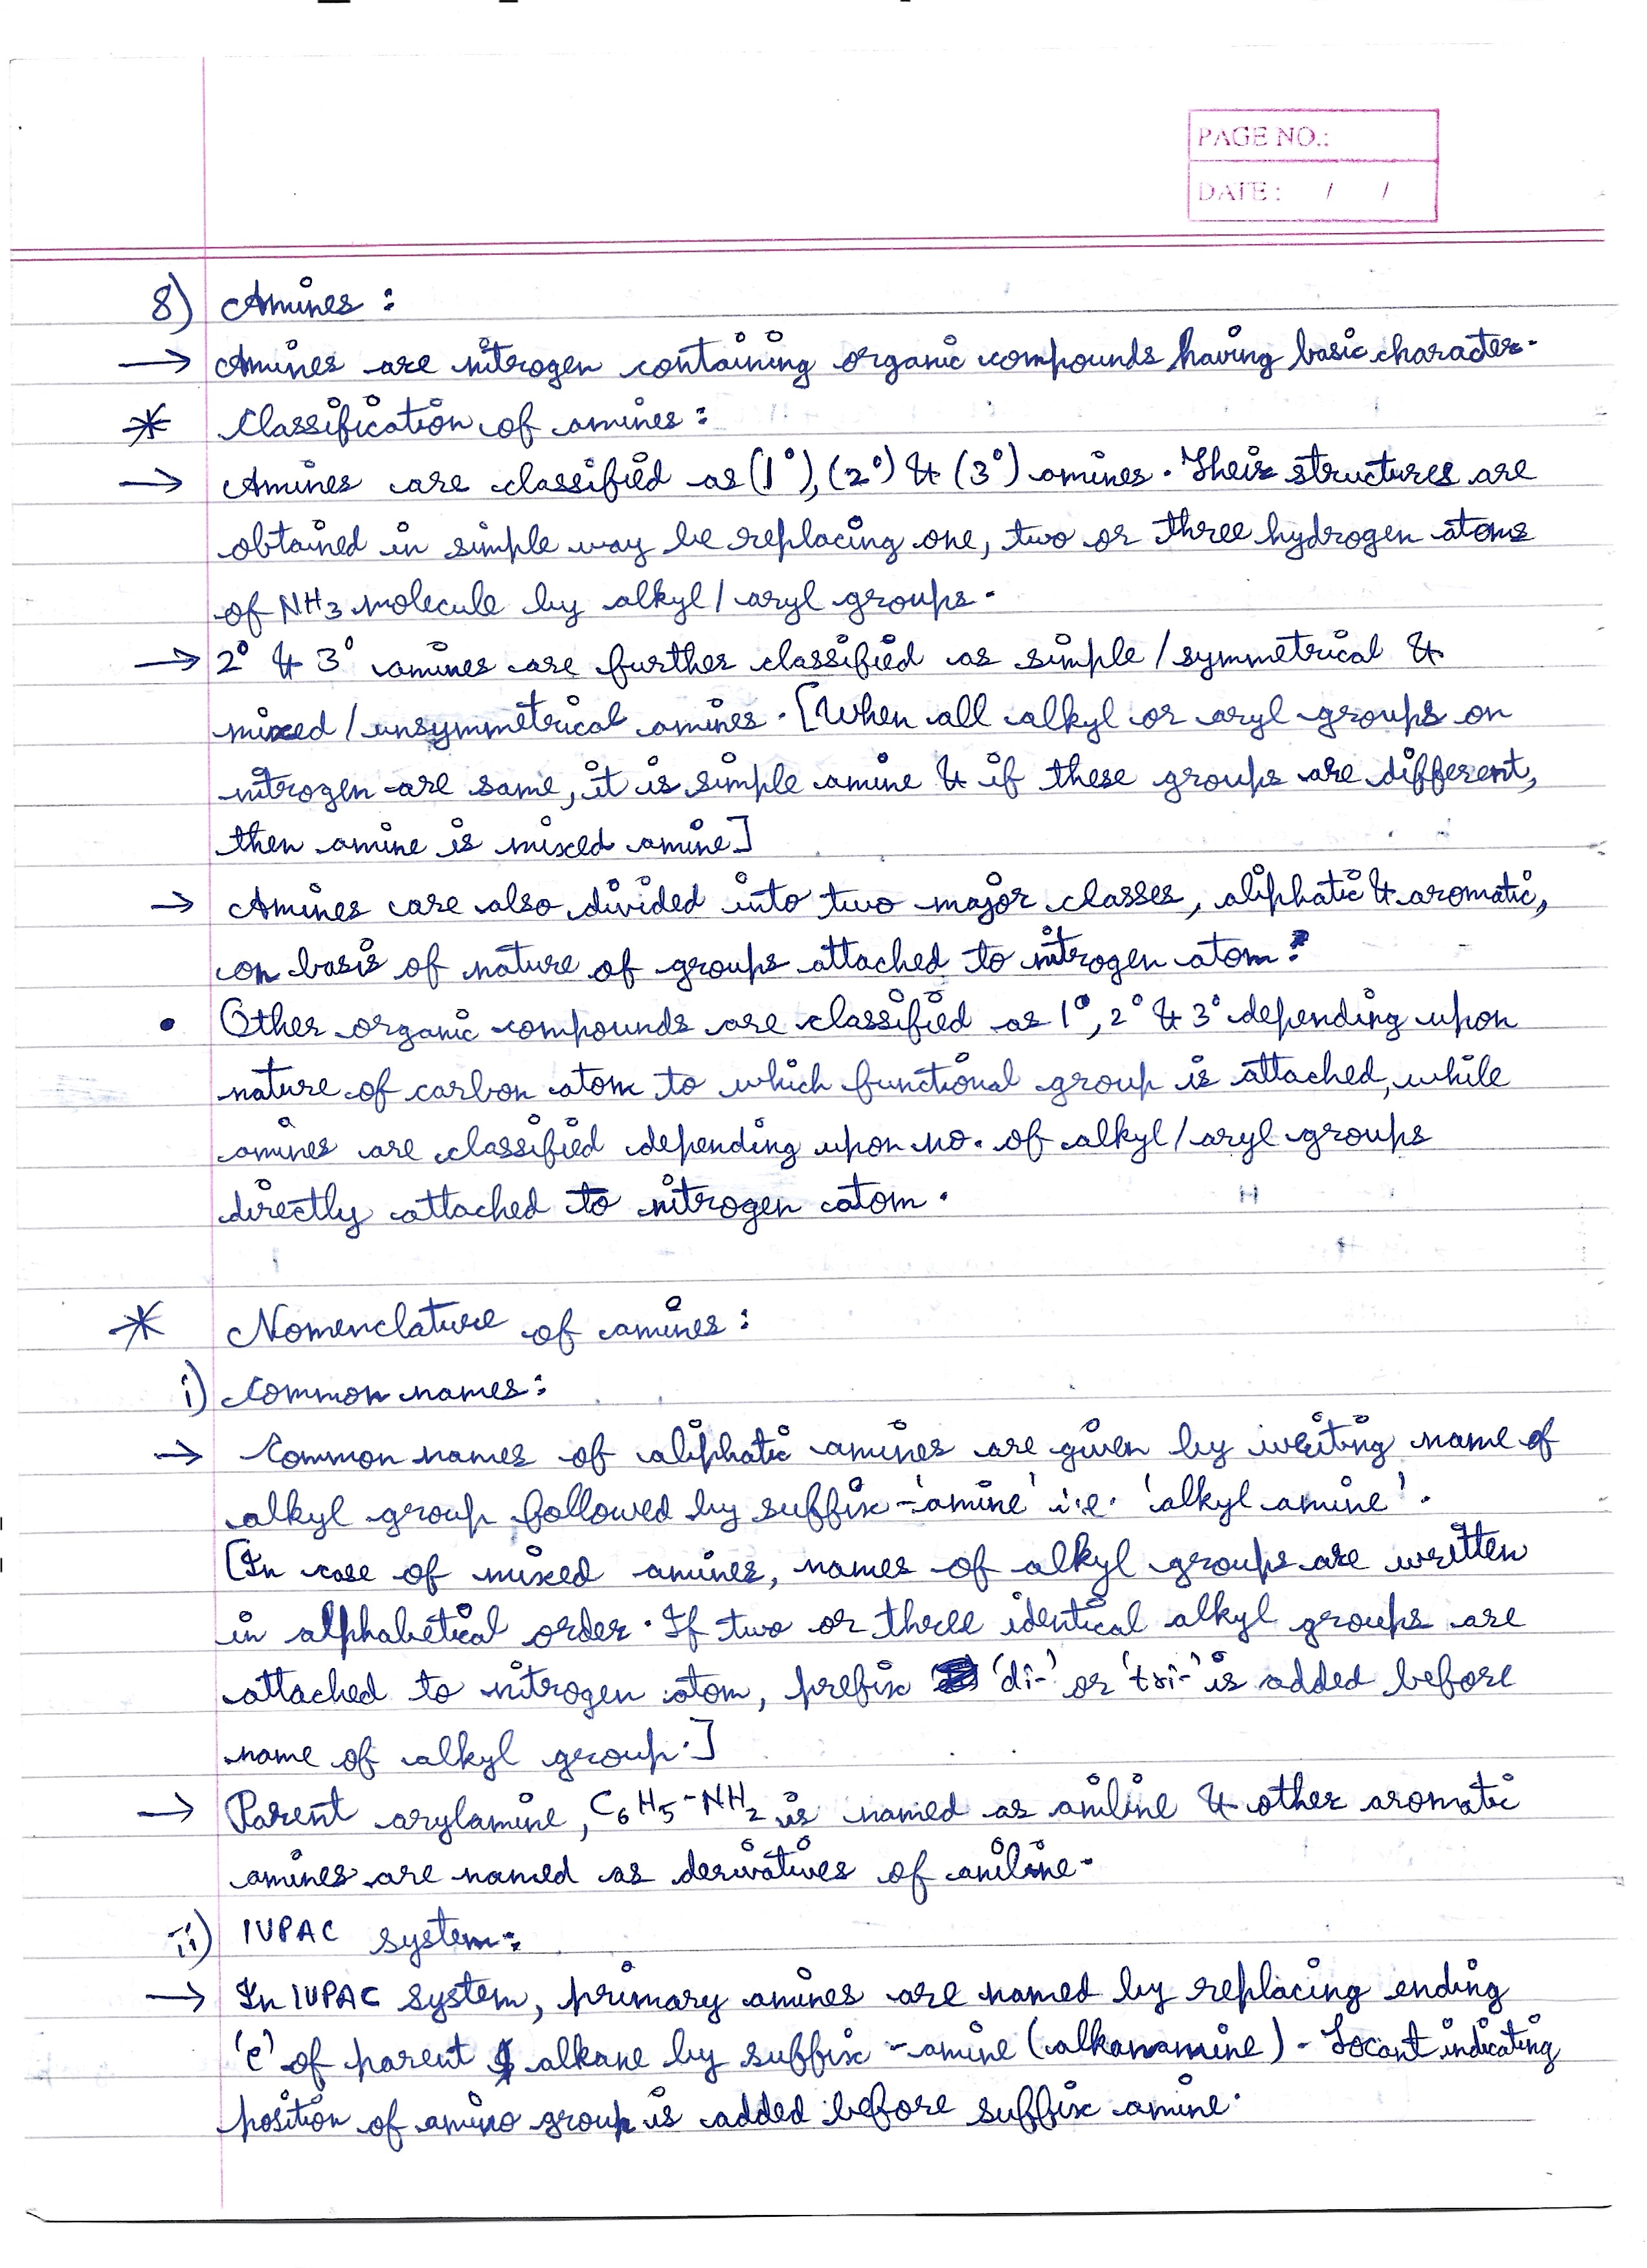 PAGE NO.:
DATE: / /
8) Amines :
→ Amines are nitrogen containing organic compounds having basic character.
* Classification of amines :
→ Amines are classified as (1°), (2°) & (3°) amines. Their structures are
obtained in simple way be replacing one, two or three hydrogen atoms
of NH3 molecule by alkyl / aryl groups.
→ 2° & 3° amines are further classified as simple / symmetrical &
mixed / unsymmetrical amines. [When all alkyl or aryl groups on
nitrogen are same, it is simple amine & if these groups are different,
then amine is mixed amine]
→ Amines are also divided into two major classes, aliphatic & aromatic,
on basis of nature of groups attached to nitrogen atom.
• Other organic compounds are classified as 1°, 2° & 3° depending upon
nature of carbon atom to which functional group is attached, while
amines are classified depending upon no. of alkyl / aryl groups
directly attached to nitrogen atom.
* Nomenclature of amines :
i) Common names :
→ Common names of aliphatic amines are given by writing name of
alkyl group followed by suffix -'amine' i.e. 'alkyl amine'.
[In case of mixed amines, names of alkyl groups are written
in alphabetical order. If two or three identical alkyl groups are
attached to nitrogen atom, prefix 'di-' or 'tri-' is added before
name of alkyl group.]
→ Parent arylamine, C6H5-NH2 is named as aniline & other aromatic
amines are named as derivatives of aniline.
ii) IUPAC system :
→ In IUPAC system, primary amines are named by replacing ending
'e' of parent alkane by suffix -amine (alkanamine). Locant indicating
position of amino group is added before suffix amine.